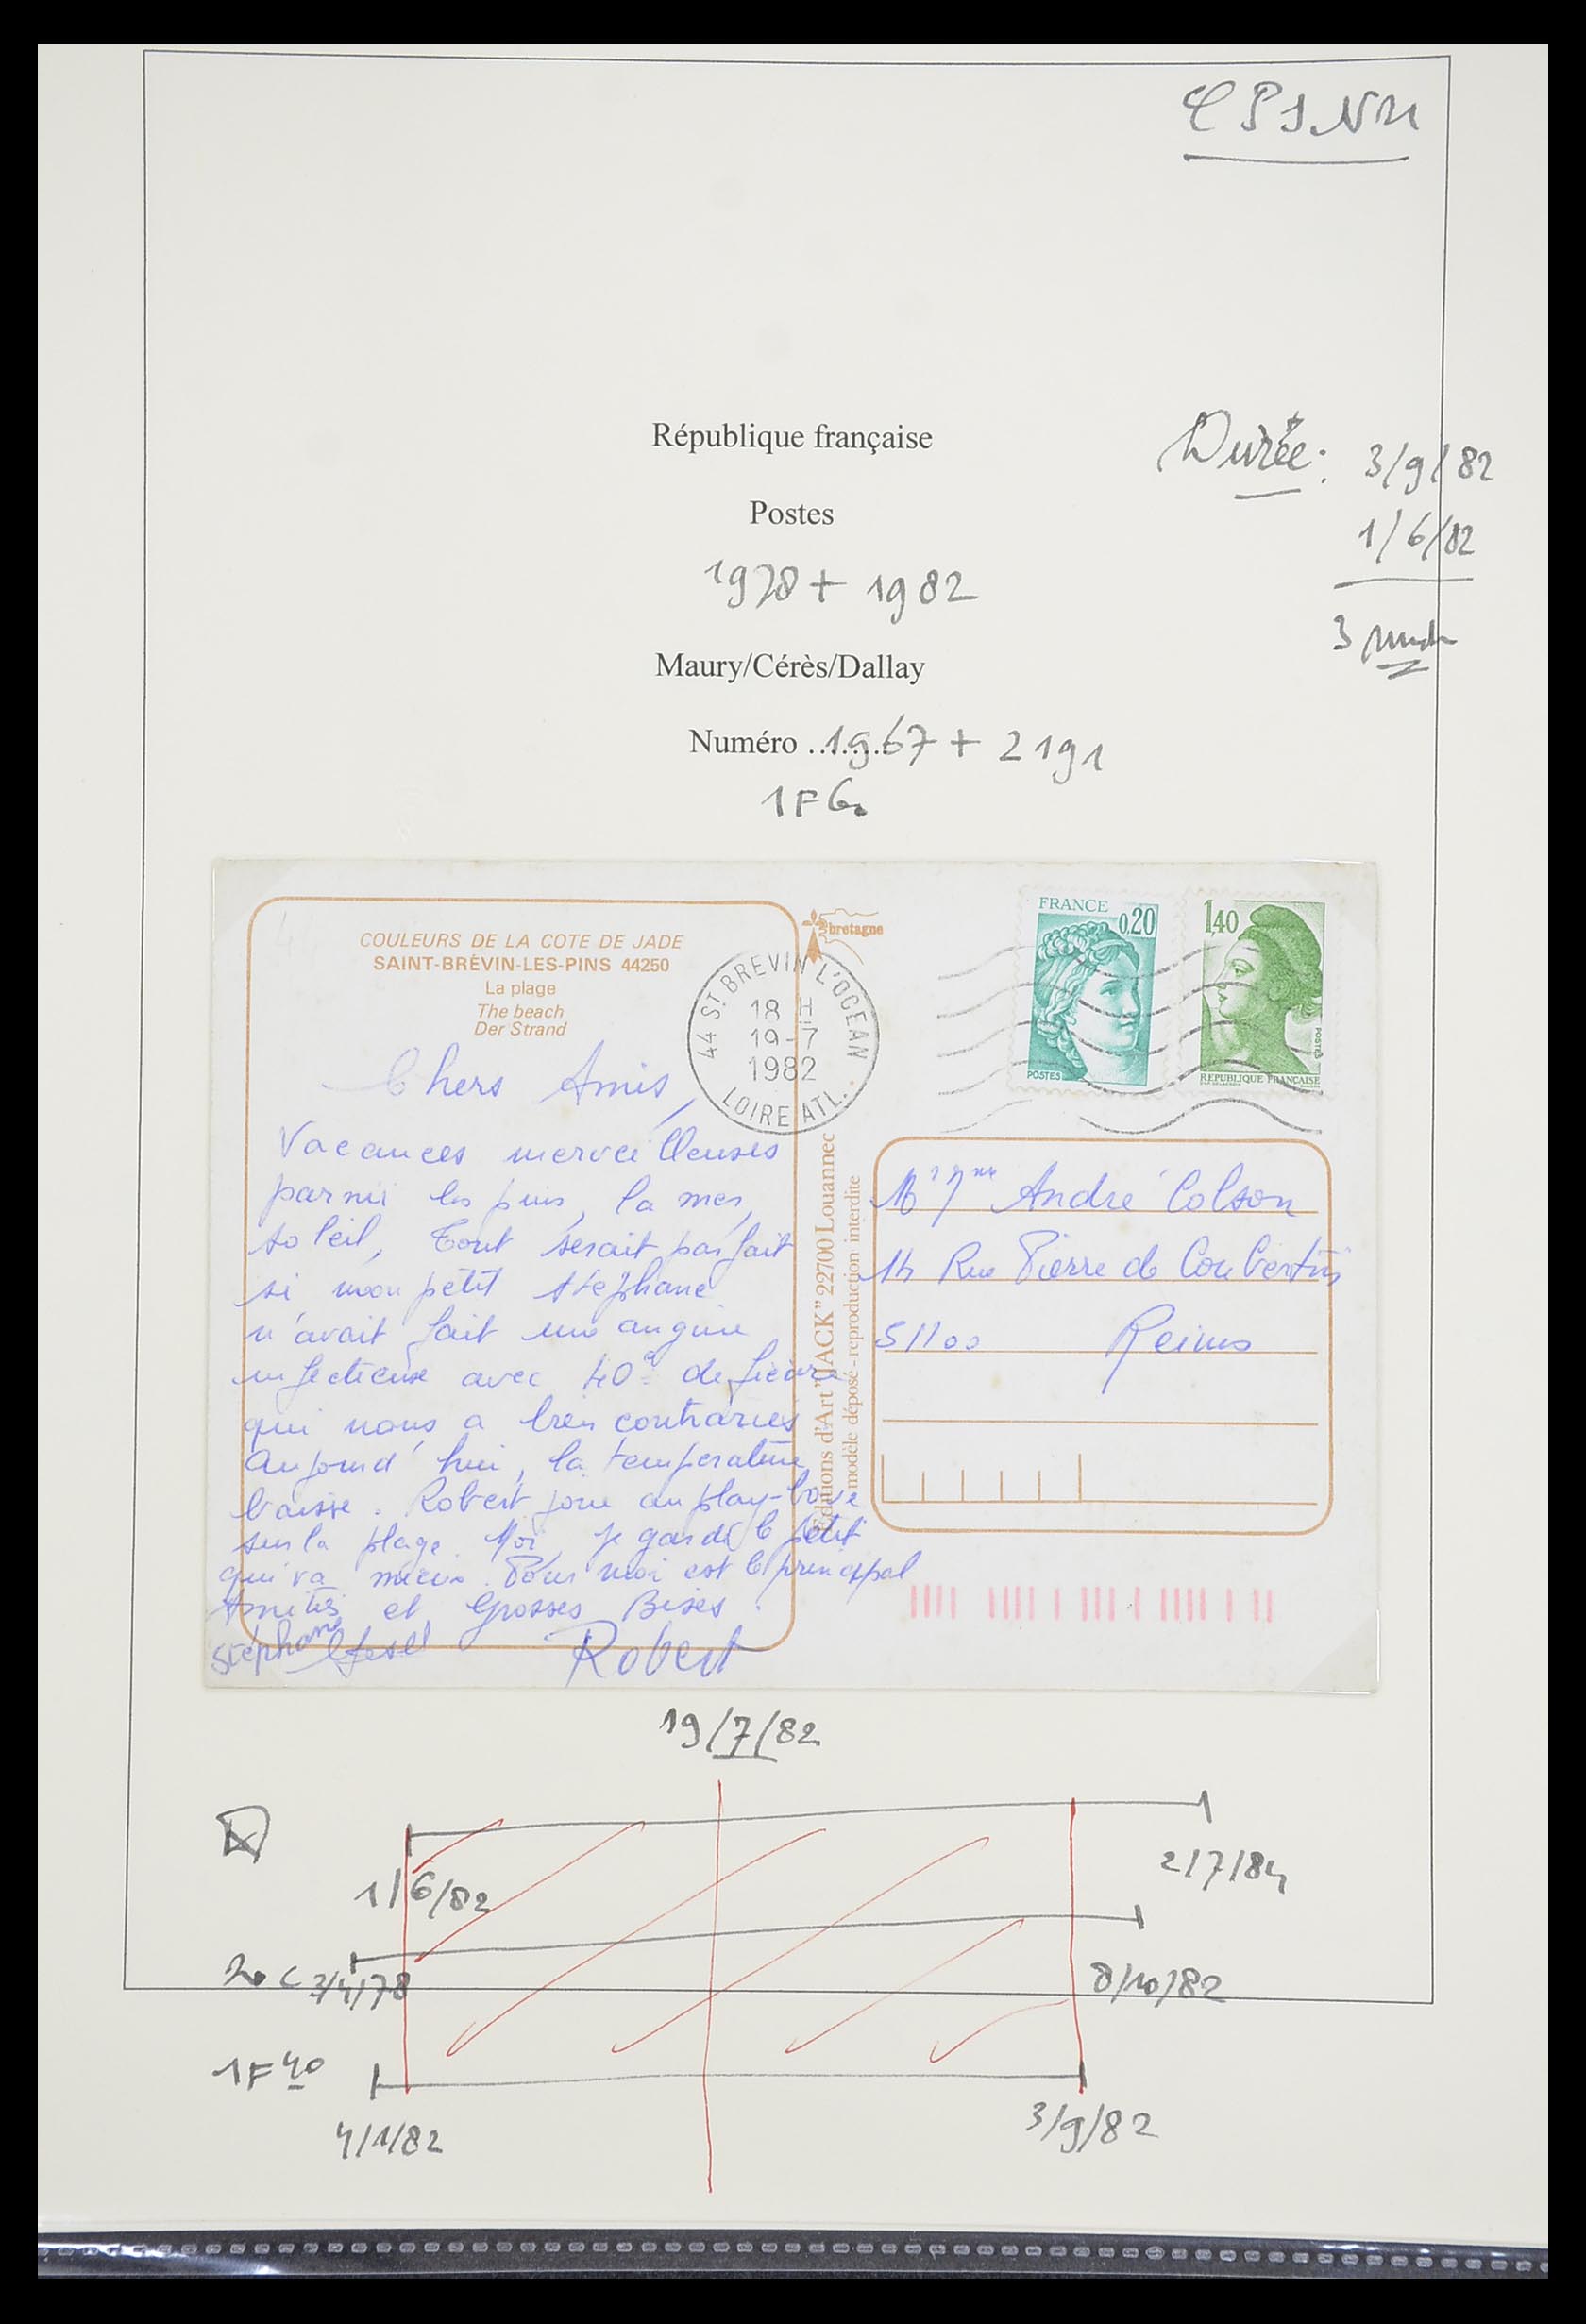 CPSNM
République française
Durée: 3/9/82
Postes
1/6/82
1978 + 1982
3 mois
Maury/Cérès/Dallay
Numéro ........1967 + 2191
1F60
COULEURS DE LA COTE DE JADE
SAINT-BRÉVIN-LES-PINS 44250
La plage
The beach
Der Strand
bretagne
44 ST BREVIN L'OCEAN
18 H
19-7
1982
LOIRE ATL.
FRANCE
0,20
POSTES
1,40
POSTES
REPUBLIQUE FRANCAISE
Chers Amis,
Vacances merveilleuses
parmi les pins, la mer,
soleil, Tout serait parfait
si mon petit Stéphane
n'avait fait une angine
infectieuse avec 40° de fièvre
qui nous a bien contrariés
Aujourd'hui, la temperature
baisse. Robert joue au play-boye
sur la plage. Moi, je garde le petit
qui va mieux. Pour moi est le principal
Amitiés et Grosses Bises.
Stéphane
Robert
Editions d'Art "JACK" 22700 Louannec
modèle déposé - reproduction interdite
Mr Mme André Colson
14 Rue Pierre de Coubertin
51100 Reims
19/7/82
1/6/82
2/7/84
20 c 3/4/78
8/10/82
1F40
4/1/82
3/9/82